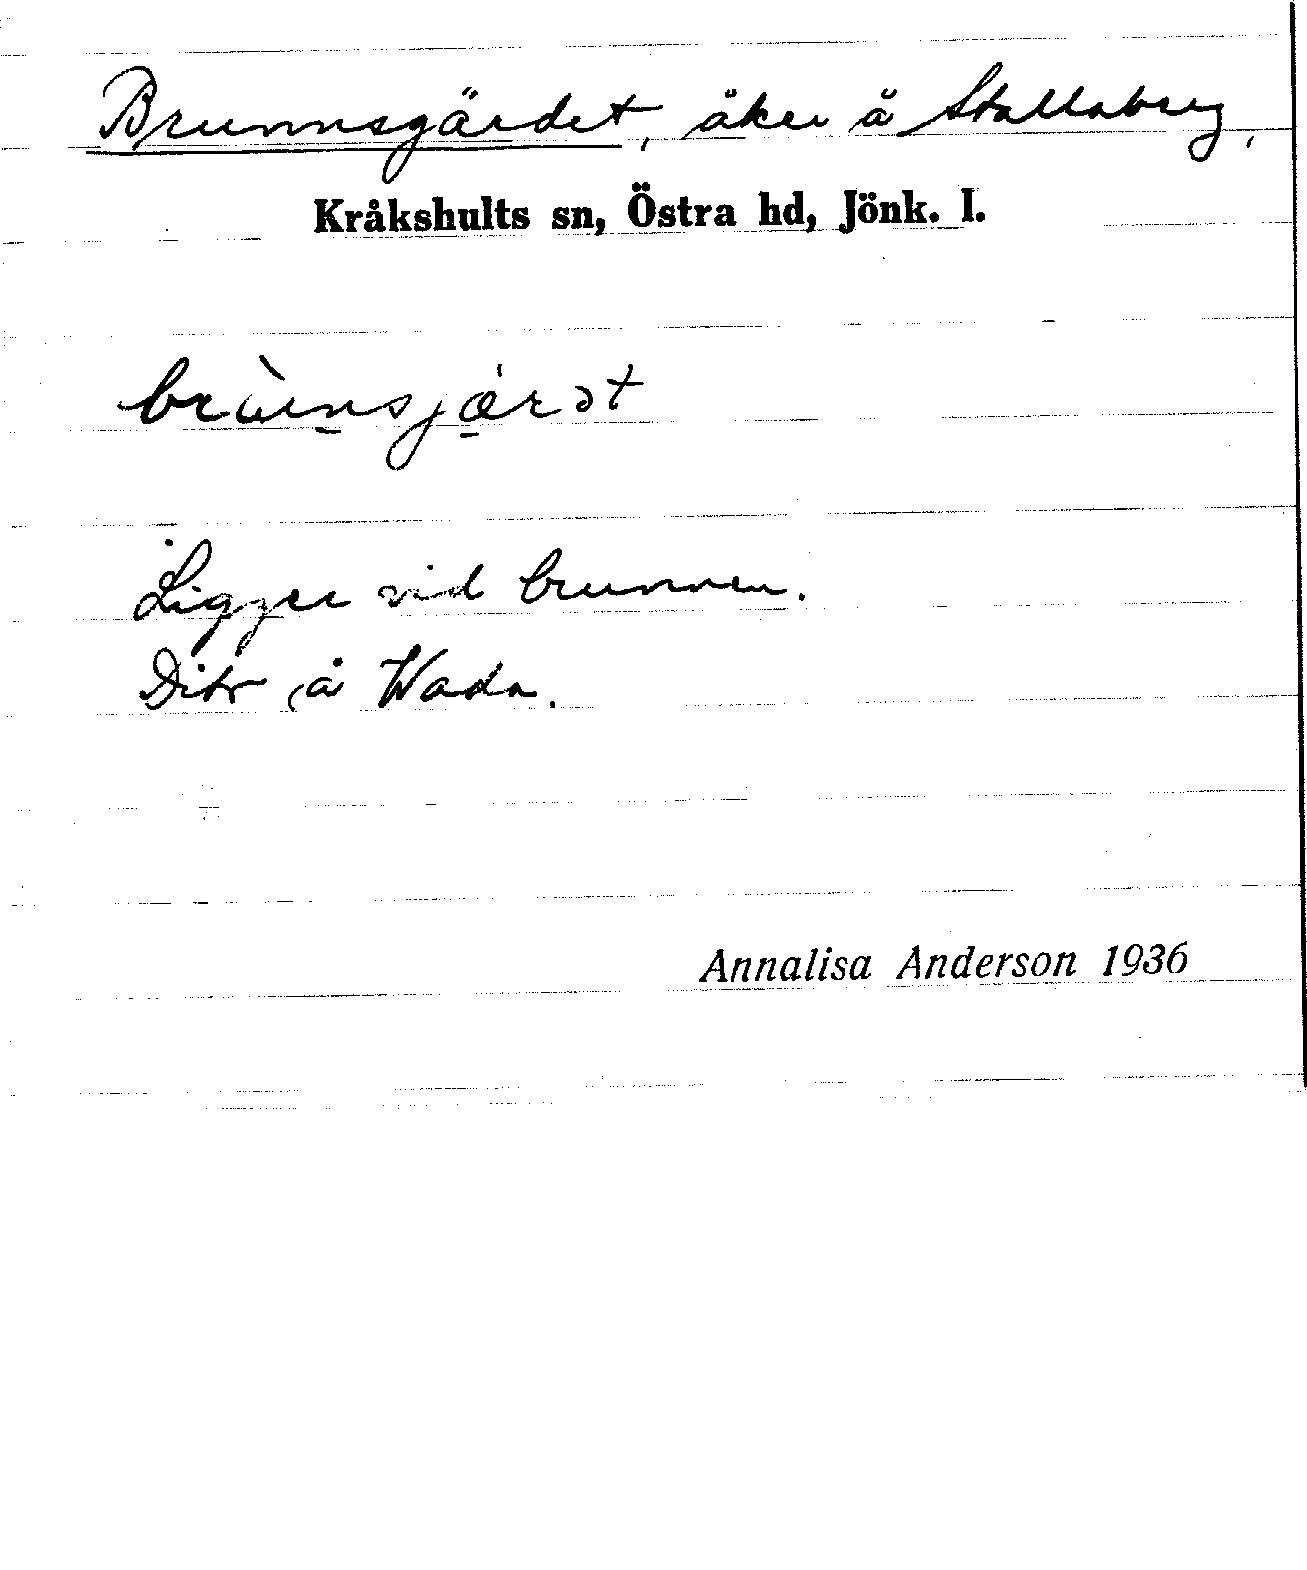 Brunnsgärdet, åker å Stallaberg,
Kråkshults sn, Östra hd, Jönk. l.
Ligger vid brunnen.
Dito å Wada.
Annalisa Anderson 1936